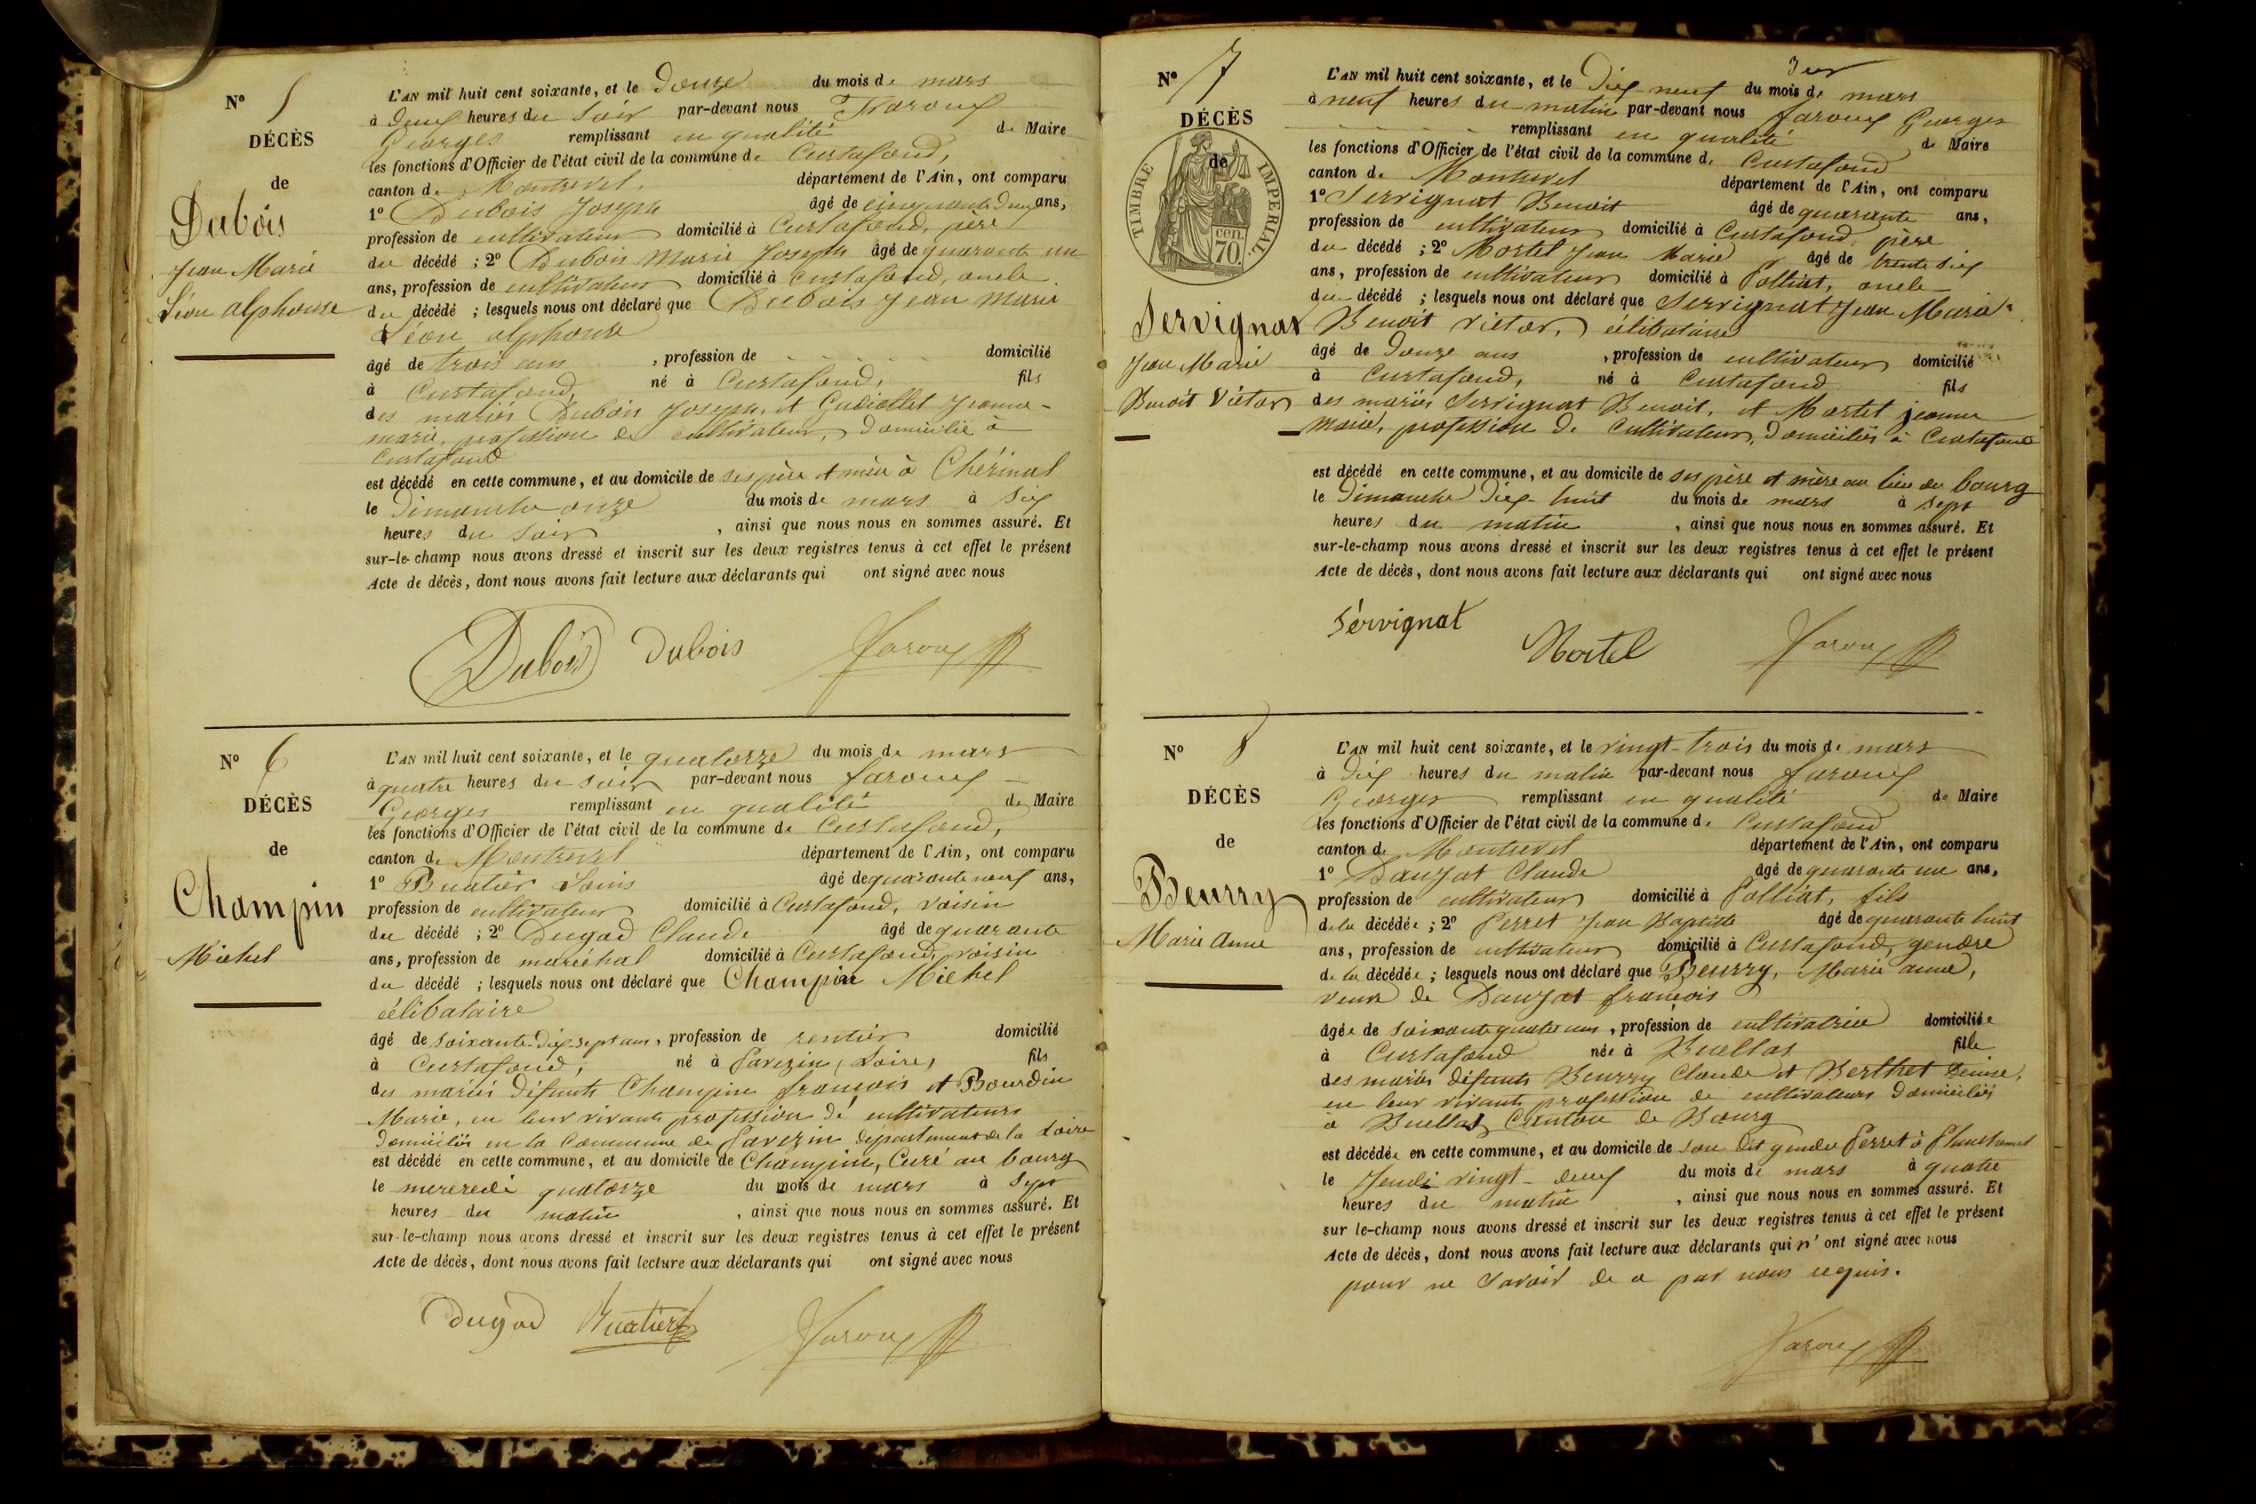 N° 5
DÉCÈS
de
Dubois
Jean Marie
Léon alphonse
L'AN mil huit cent soixante, et le Douze du mois de mars
à Deux heures du Soir par-devant nous Faroux
Georges remplissant en qualité de Maire
les fonctions d'Officier de l'état civil de la commune de Curtafond,
canton de Montrevel. département de l'Ain, ont comparu
1° Dubois Joseph âgé de cinquante Deux ans,
profession de cultivateur domicilié à Curtafond, père
du décédé ; 2° Dubois Marie Joseph âgé de quarante un
ans, profession de cultivateur domicilié à Curtafond, oncle
du décédé ; lesquels nous ont déclaré que Dubois Jean Marie
Léon alphonse
âgé de trois ans , profession de domicilié
à Curtafond, né à Curtafond, fils
des mariés Dubois Joseph, et Jeanne-
marie, profession de cultivateur, domicilié à
Curtafond
est décédé en cette commune, et au domicile de ses père et mère à Chérinal
le Dimanche onze du mois de mars à Dix
heures du soir , ainsi que nous nous en sommes assuré. Et
sur-le-champ nous avons dressé et inscrit sur les deux registres tenus à cet effet le présent
Acte de décès, dont nous avons fait lecture aux déclarants qui ont signé avec nous
Dubois Dubois Faroux
N° 6
DÉCÈS
de
Champin
Michel
L'AN mil huit cent soixante, et le quatorze du mois de mars
à quatre heures du soir par-devant nous faroux
Georges remplissant en qualité de Maire
les fonctions d'Officier de l'état civil de la commune de Curtafond,
canton de Montrevel département de l'Ain, ont comparu
1° Buatier Louis âgé de quarante neuf ans,
profession de cultivateur domicilié à Curtafond, voisin
du décédé ; 2° Dugad Claude âgé de quarante
ans, profession de maréchal domicilié à Curtafond, voisin
du décédé ; lesquels nous ont déclaré que Champin Michel
célibataire
âgé de soixante-dix sept ans, profession de rentier domicilié
à Curtafond, né à Pavezin (Loire) fils
des mariés défunts Champin françois et Bourdin
Marie, en leur vivant profession de cultivateurs
domiciliés en la Commune de Pavezin département de la Loire
est décédé en cette commune, et au domicile de Champin, Curé au bourg
le mercredi quatorze du mois de mars à sept
heures du matin , ainsi que nous nous en sommes assuré. Et
sur-le-champ nous avons dressé et inscrit sur les deux registres tenus à cet effet le présent
Acte de décès, dont nous avons fait lecture aux déclarants qui ont signé avec nous
Dugad Buatier Faroux
N° 7
DÉCÈS
de
TIMBRE IMPERIAL.
cen.
70.
Servignat
Jean Marie
Benoit Victor
L'AN mil huit cent soixante, et le Dix-neuf du mois de mars
à neuf heures du matin par-devant nous faroux Georges
remplissant en qualité de Maire
les fonctions d'Officier de l'état civil de la commune de Curtafond
canton de Montrevel département de l'Ain, ont comparu
1° Servignat Benoit âgé de quarante ans,
profession de cultivateur domicilié à Curtafond père
du décédé ; 2° Mortel Jean Marie âgé de trente dix
ans, profession de cultivateur domicilié à Polliat, oncle
du décédé ; lesquels nous ont déclaré que Servignat Jean Marie
Benoit victor, célibataire
âgé de Douze ans , profession de cultivateur domicilié
à Curtafond, né à Curtafond fils
des mariés Servignat Benoit, et Mortel jeanne
Marie, profession de Cultivateurs, domiciliés à Curtafond
est décédé en cette commune, et au domicile de ses père et mère au lieu du bourg
le Dimanche Dix-huit du mois de mars à sept
heures du matin , ainsi que nous nous en sommes assuré. Et
sur-le-champ nous avons dressé et inscrit sur les deux registres tenus à cet effet le présent
Acte de décès, dont nous avons fait lecture aux déclarants qui ont signé avec nous
Sérvignat
Mortel Faroux
N° 8
DÉCÈS
de
Beurry
Marie Anne
L'AN mil huit cent soixante, et le vingt-trois du mois de mars
à Dix heures du matin par-devant nous faroux
Georges remplissant en qualité de Maire
les fonctions d'Officier de l'état civil de la commune de Curtafond
canton de Montrevel département de l'Ain, ont comparu
1° Danjat Claude âgé de quarante un ans,
profession de cultivateur domicilié à Polliat, fils
de la décédée ; 2° Perret Jean Baptiste âgé de quarante huit
ans, profession de cultivateur domicilié à Curtafond, gendre
de la décédée ; lesquels nous ont déclaré que Beurry, Marie anne,
veuve de Danjat françois
âgée de soixante quatre ans, profession de cultivatrice domiciliée
à Curtafond née à Buellas fille
des mariés défunts Beurry Claude et Berthet
en leur vivant profession de cultivateurs domiciliés
à Buellas, Canton de Bourg
est décédée en cette commune, et au domicile de son dit gendre Perret à
le Jeudi vingt-deux du mois de mars à quatre
heures du matin , ainsi que nous nous en sommes assuré. Et
sur le-champ nous avons dressé et inscrit sur les deux registres tenus à cet effet le présent
Acte de décès, dont nous avons fait lecture aux déclarants qui n'ont signé avec nous
pour ne savoir de ce par nous requis.
Faroux